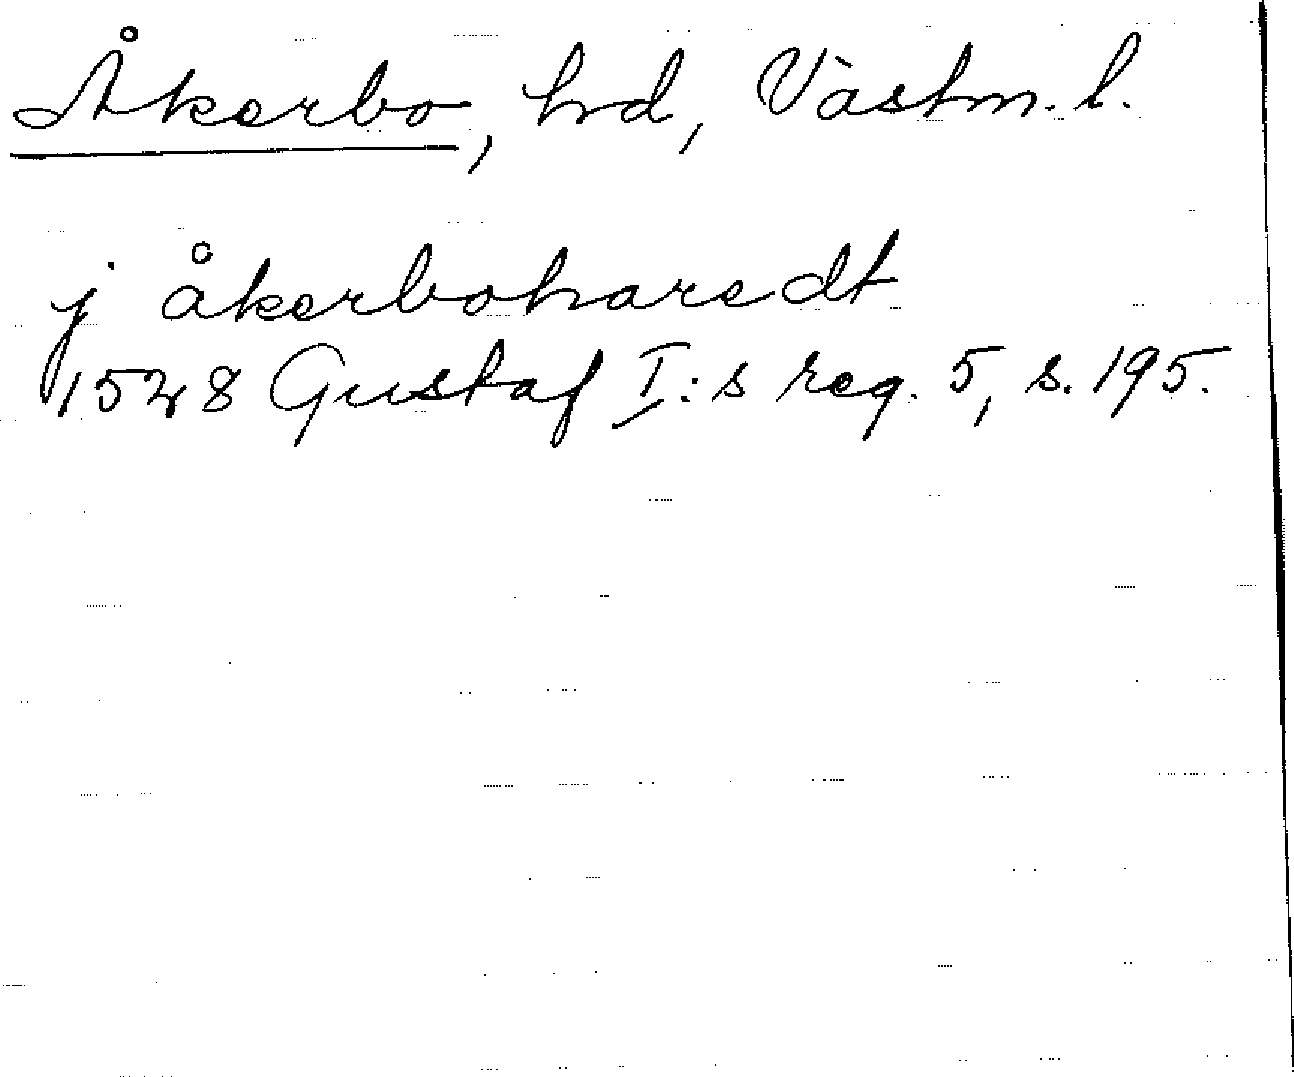 Åkerbo, hrd, Västm. l.
j åkerboharedt
1528 Gustaf I:s reg. 5, s. 195.